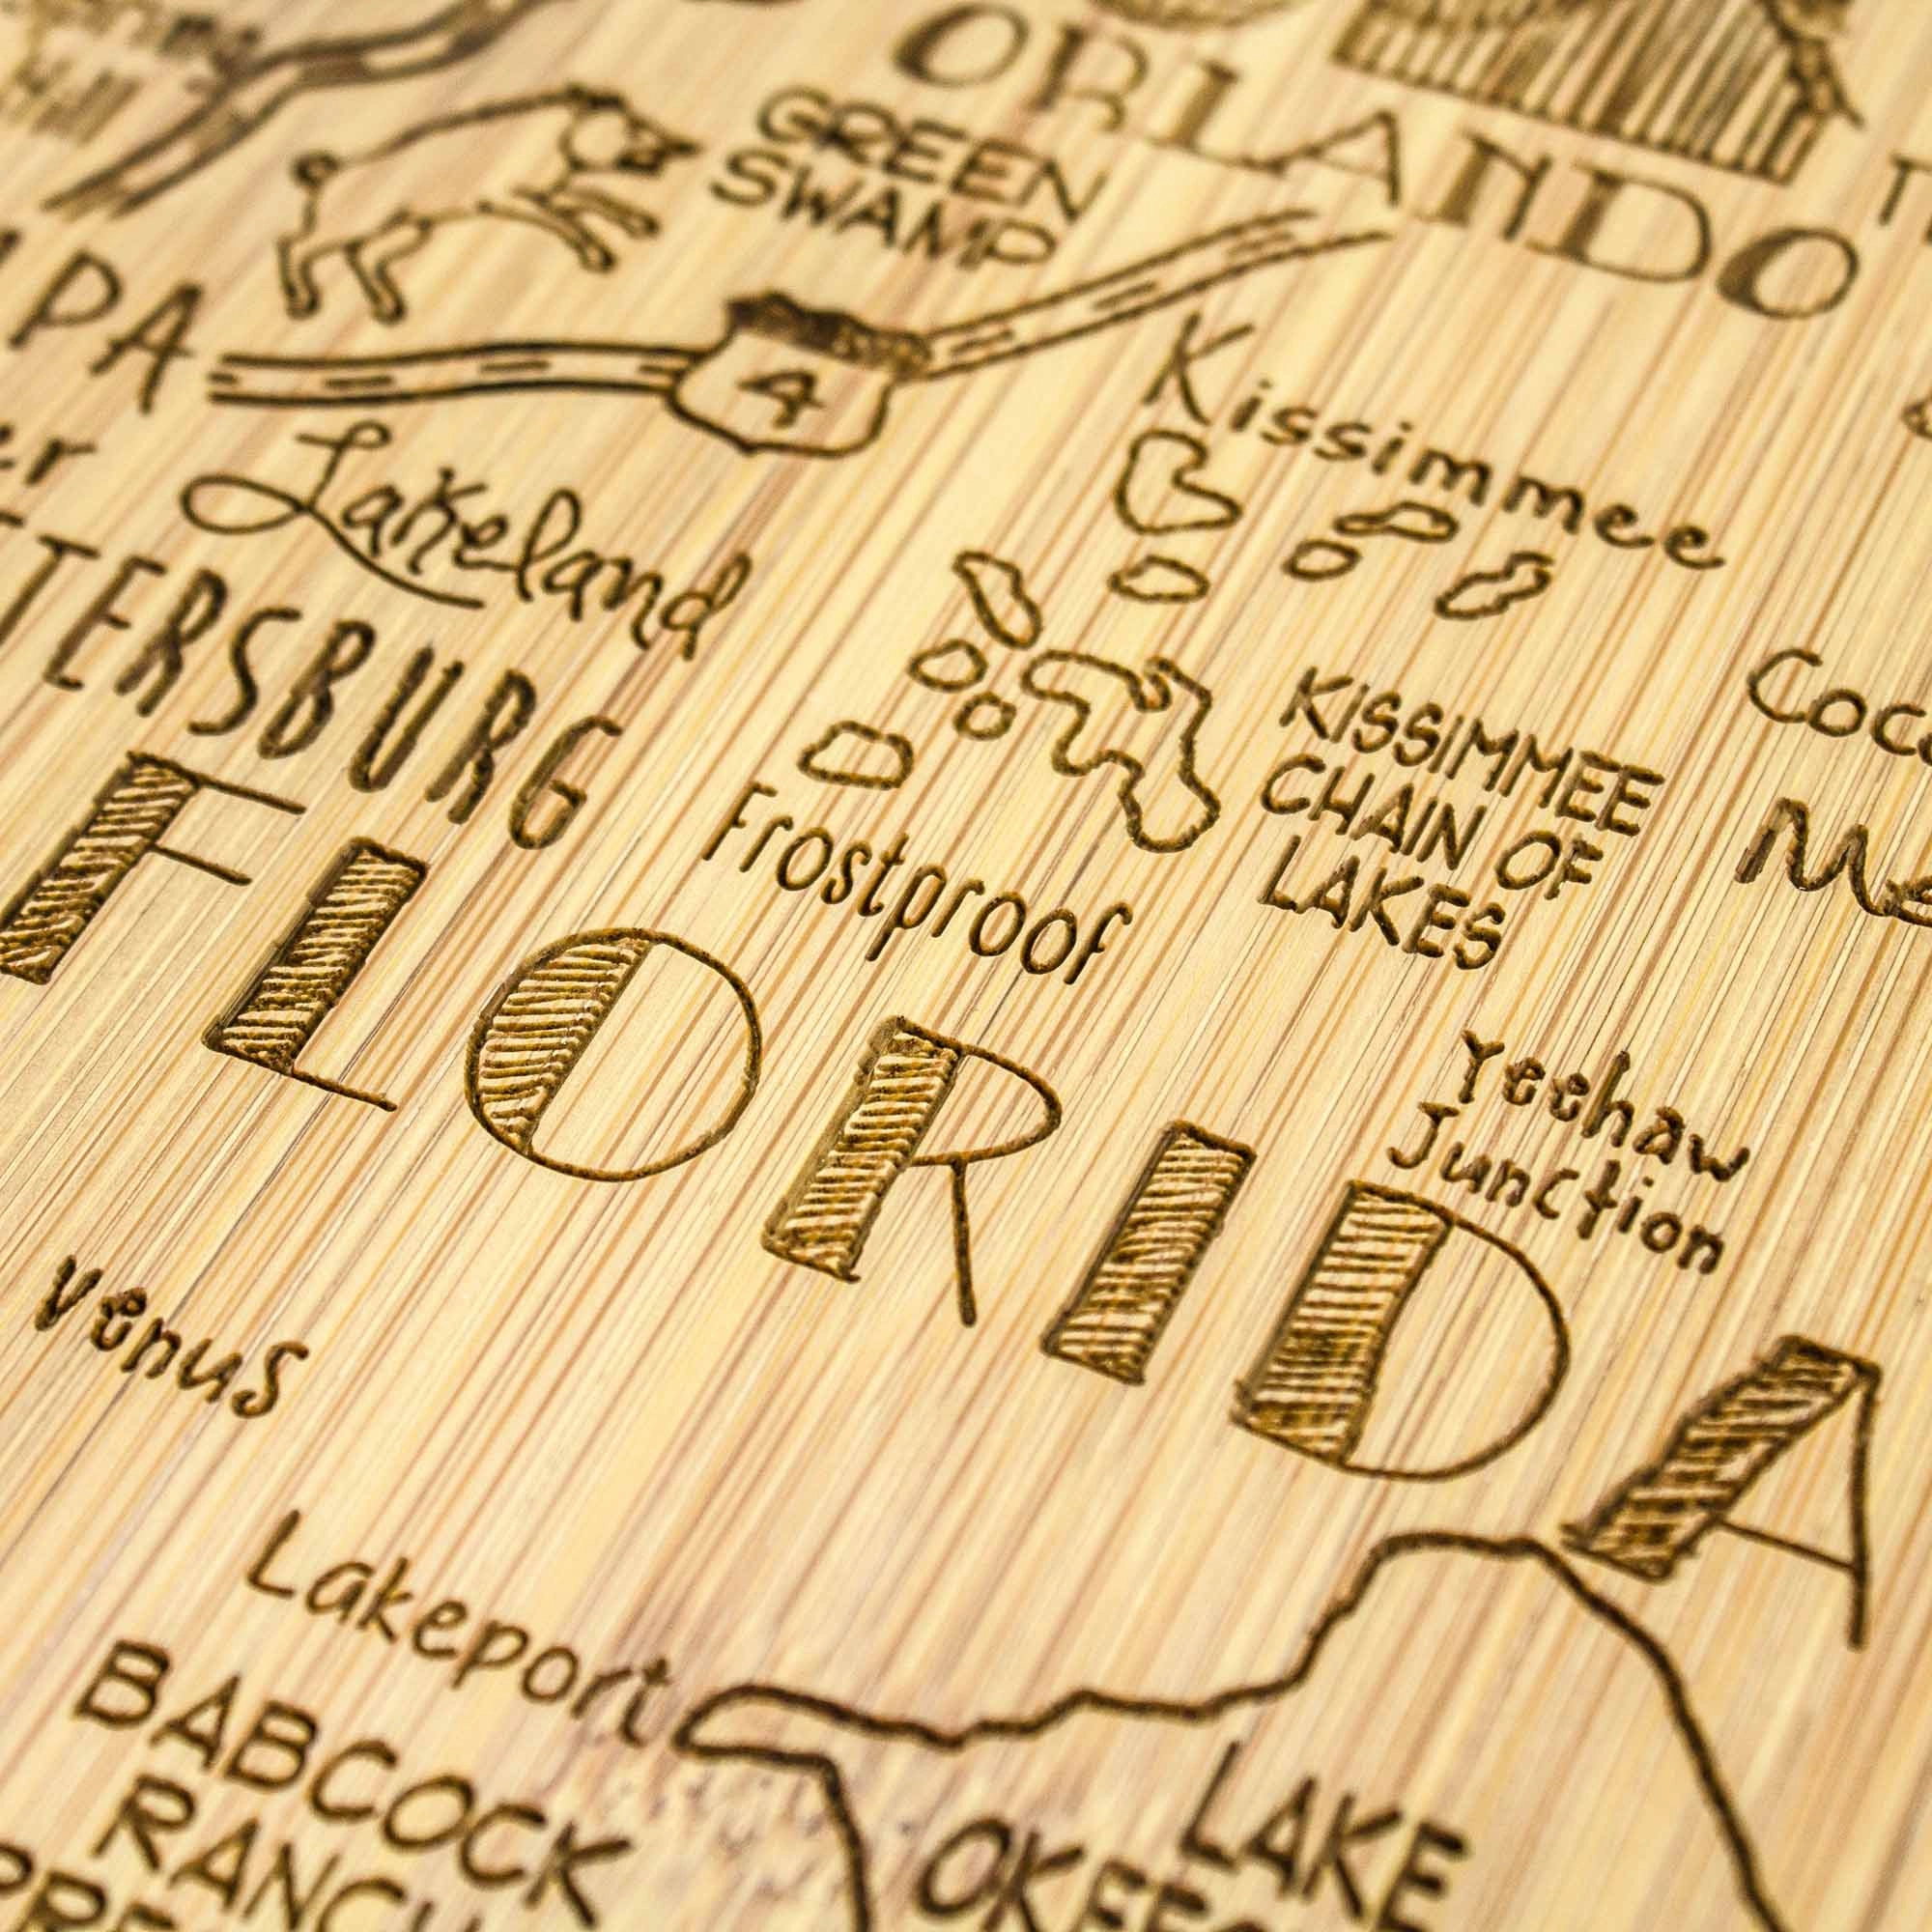 ORLANDO
GREEN
SWAMP
4
Kissimmee
Lakeland
TERSBURG
KISSIMMEE
CHAIN OF
LAKES
Frostproof
FLORIDA
Yeehaw
Junction
Venus
Lakeport
BABCOCK
RANCH
LAKE
OKEE